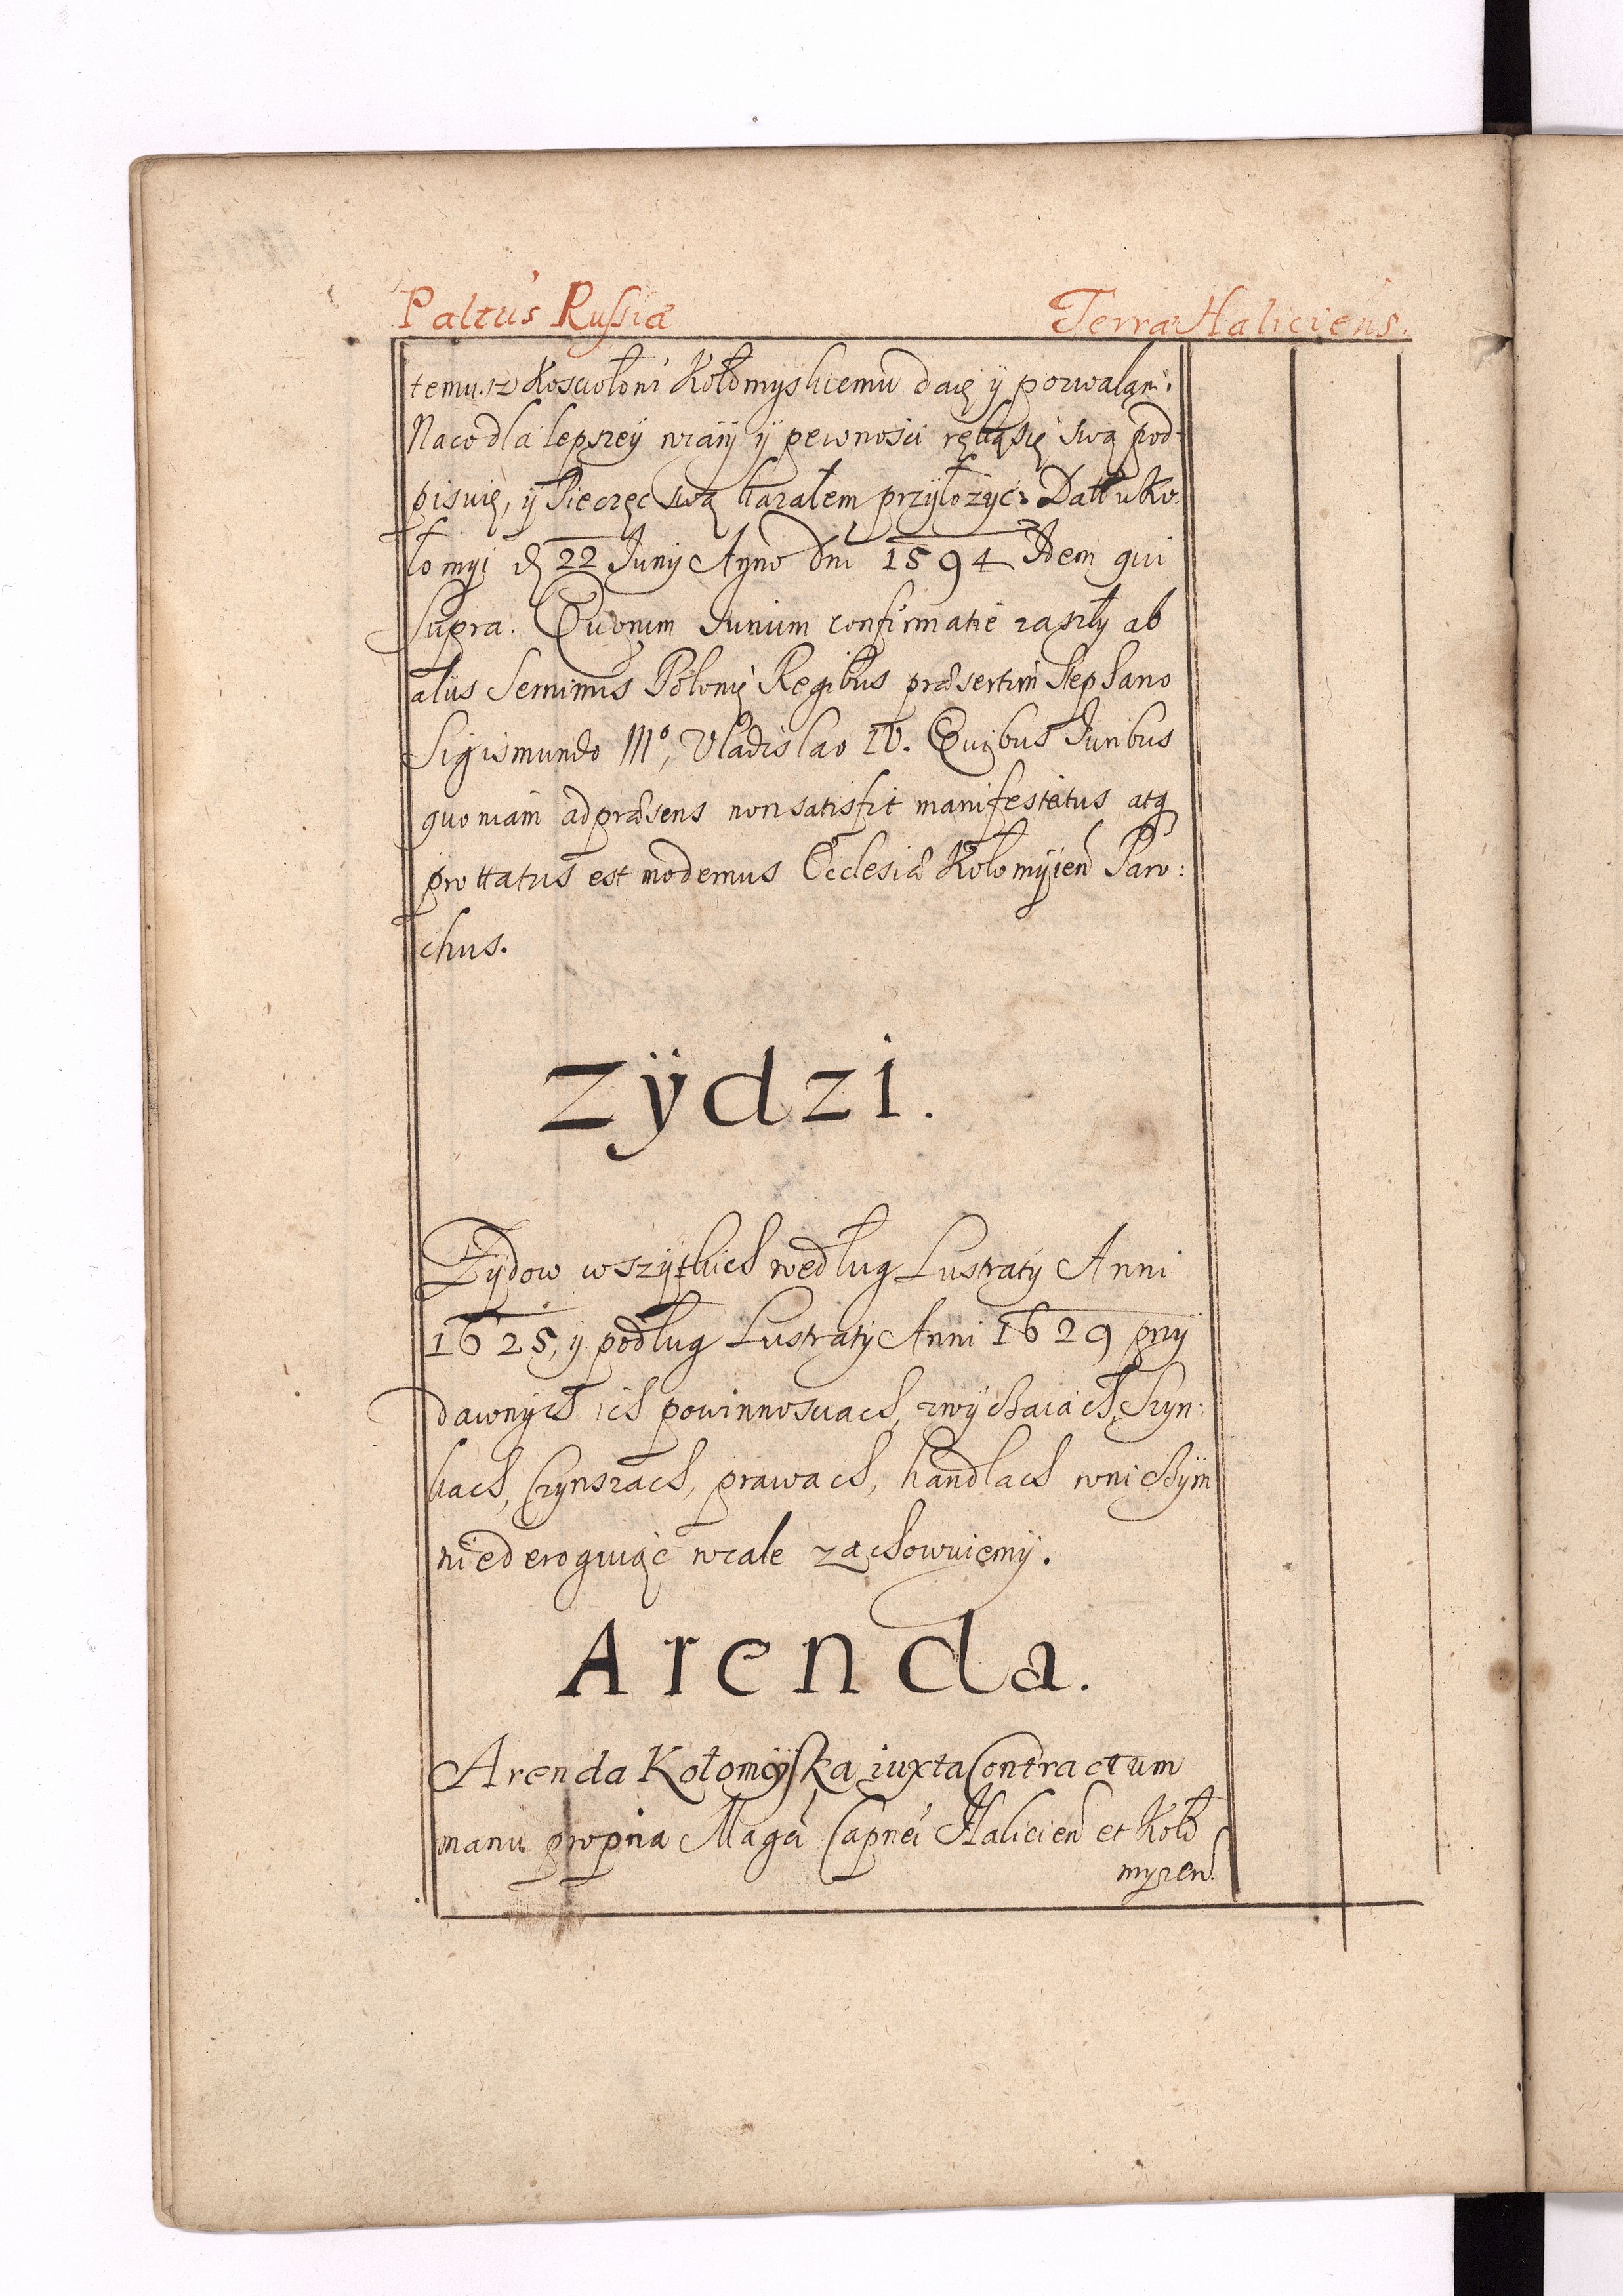 Paltus Russiæ Terræ Haliciens.
temusz Kosciołoni Kołomyskiemu daię ÿ pozwalam.
Naco dla lepszeÿ wiarÿ ÿ pewnosci ręką się swą pod-
pisuię, ÿ Pieczęc swą kazałem przÿłożÿc. Datt u Ko-
łomyi d 22 Junÿ Anno dni 1594 Idem qui
supra. Quorum Jurium confirmatie zaszłÿ ab
alÿs Serenimis Polonię Regibus præsertim Stephano
Sigismundo IIIº, Vladislao IV. Quibus Juribus
quoniam ad præsens non satisfit manifestatus atq
prottatus est modernus Ecclesiæ Kołomÿien Paro:
chus.
Zÿdzi.
Zÿdow wszÿtkich według Lustratÿ Anni
1625, ÿ podług Lustratÿ Anni 1629 przÿ
dawnÿch ich powinnosciach, zwÿchaiach, Szyn:
kach, Czÿnszach, prawach, handlach wniczÿm
niederoguiąc wcale zachowuiemÿ.
Arenda.
Arenda Kołomÿska iuxta Contractum
manu propria Magci Capnei Halicien et Koło
myien